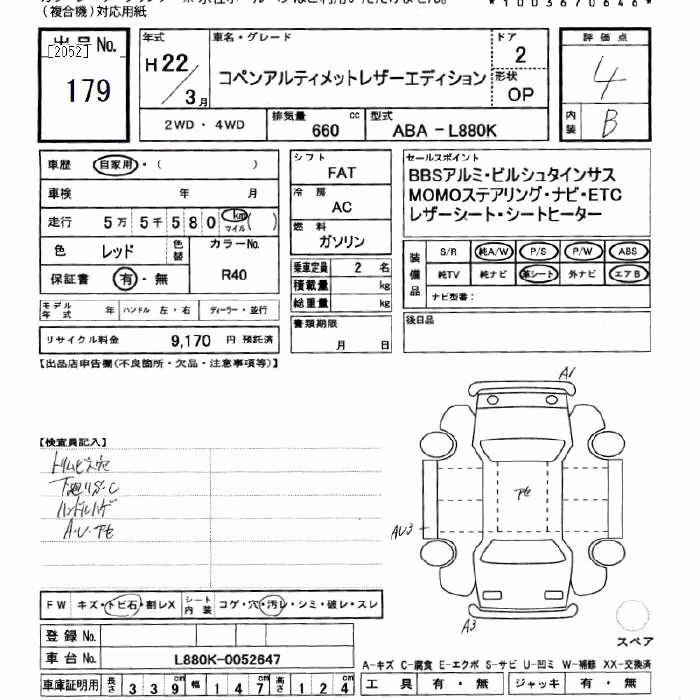 (複合機)対応用紙
*1003670646*
出品No.
[2052]
179
年式
H22/3月
車名・グレード
コペンアルティメットレザーエディション
ドア
2
形状
OP
評価点
4
内装
B
2WD・4WD
排気量
660
cc
型式
ABA-L880K
車歴
自家用・(　　　)
車検
年　月
走行
5万5千580
km
マイル
( )
色
レッド
色替
カラーNo.
R40
保証書
有・無
モデル年式
年
ハンドル 左・右
ディーラー・並行
リサイクル料金
9,170 円 預託済
シフト
FAT
冷房
AC
燃料
ガソリン
乗車定員
2 名
積載量
kg
総重量
kg
書類期限
月　日
セールスポイント
BBSアルミ・ビルシュタインサス
MOMOステアリング・ナビ・ETC
レザーシート・シートヒーター
装備品
S/R 純A/W P/S P/W ABS
純TV 純ナビ 革シート 外ナビ エアB
ナビ型番:
後日品
【出品店申告欄(不良箇所・欠品・注意事項等)】
【検査員記入】
トリムビス穴
下廻りS・C
ハンドルハゲ
A・U・アセ
A1
アセ
AU3
A3
スペア
FW
キズ・トビ石・割レX
シート内装
コゲ・穴・汚レ・シミ・破レ・スレ
登録No.
車台No.
L880K-0052647
車庫証明用
長さ 339cm
幅 147cm
高さ 124cm
A-キズ C-腐食 E-エクボ S-サビ U-凹ミ W-補修 XX-交換済
工具 有・無
ジャッキ 有・無